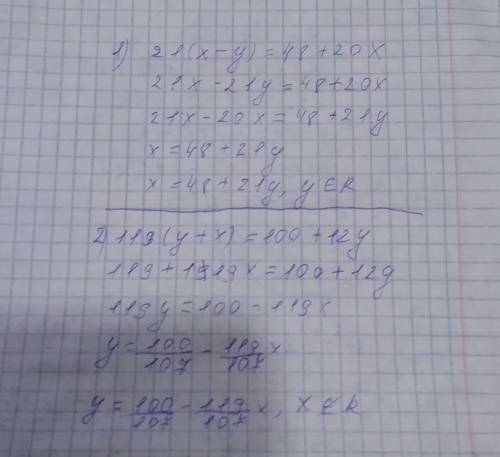 1) 21(x-y)=48+20x
21x-21y=48+20x
21x-20x=48+21y
x=48+21y
x=48+21y, y∈R
2) 119(y+x)=100+12y
119+119x=100+12y
119y=100-119x
y=100/107-119/107x
y=100/107-119/107x, x∈R